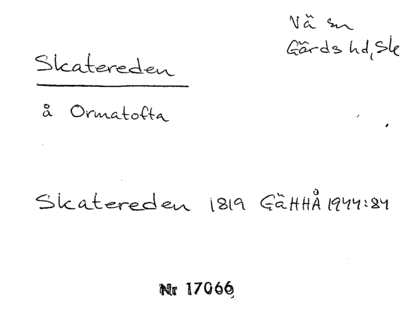 Vä sn
Gärds hd, Sk
Skatereden
å Ormatofta
Skatereden 1819 GäHHÅ 1944:84
Nr 17066